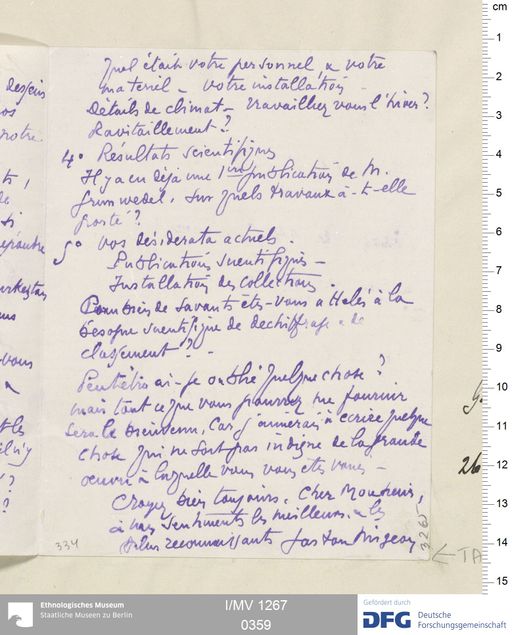 Quel était votre personnel, & votre
matériel - votre installation
Détails de climat - travaillez vous l'hiver?
Ravitaillement?
4° Résultats scientifiques
Il y a eu déjà une 1ère publication de M.
Grunwedel. Sur quels travaux a-t-elle
porté?
5° Vos désiderata actuels
Publications scientifiques -
Installation des collections
Combien de savants êtes-vous attelés à la
besogne scientifique de dechiffrage & de
classement? -
Peut être ai-je oublié quelque chose?
mais tout ce que vous pourrez me fournir
sera le bienvenu, car j'aimerais à écrire quelque
chose qui ne soit pas indigne de la grande
œuvre à laquelle vous vous êtes voués -
Croyez bien toujours, cher Monsieur,
à mes sentiments les meilleurs & les
plus reconnaissants Gaston Migeon
334
3265
TA
desseins
vos
notre
de
si
vous
il n'y
?
?
26
cm
1
2
3
4
5
6
7
8
9
10
11
12
13
14
15
Ethnologisches Museum
Staatliche Museen zu Berlin
I/MV 1267
0359
Gefördert durch
DFG Deutsche
Forschungsgemeinschaft